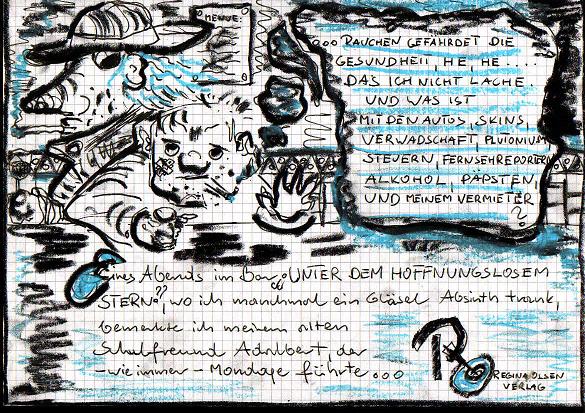 MENUE:
...RAUCHEN GEFÄHRDET DIE
GESUNDHEIT. HE, HE....
DAS ICH NICHT LACHE.
UND WAS IST
MIT DEN AUTOS, SKINS,
VERWADSCHAFT, PLUTONIUM,
STEUERN, FERNSEHREPORTER,
ALKOHOL, PÄPSTEN,
UND MEINEM VERMIETER
?
Eines Abends im Bar „UNTER DEM HOFFNUNGSLOSEM
STERN", wo ich manchmal ein Gläsel Absinth trank,
bemerkte ich meinem alten
Schulfreund Adalbert, der
- wie immer - Monologe führte...
REGINA OLSEN
VERLAG